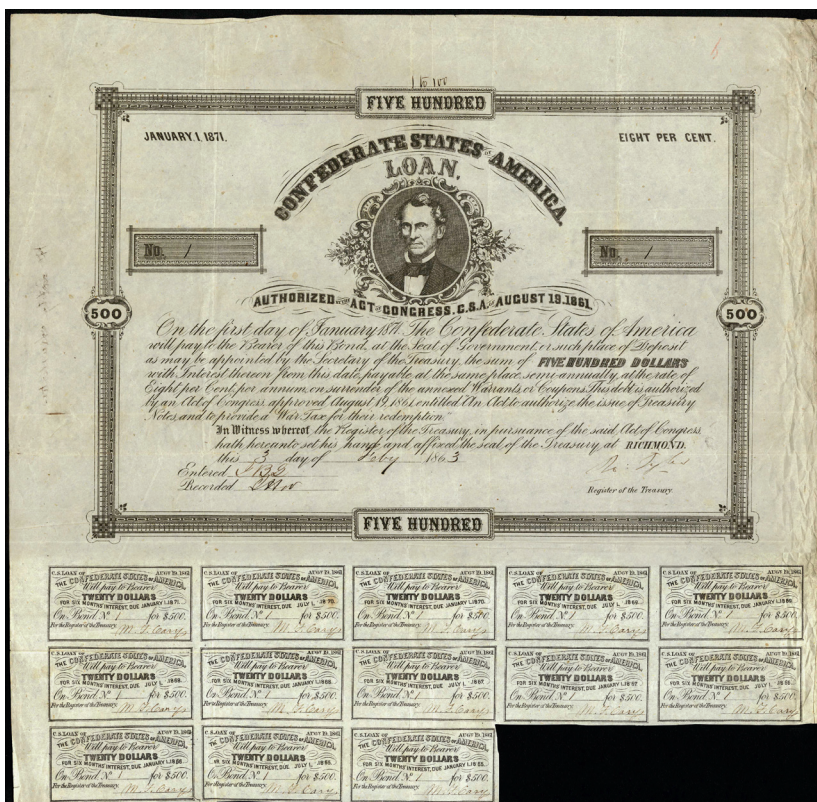 1 to 100
FIVE HUNDRED
JANUARY.1.1871.
EIGHT PER CENT.
CONFEDERATE STATES OF AMERICA.
LOAN.
No. 1
No. 1
AUTHORIZED BY THE ACT OF CONGRESS. C.S.A. OF AUGUST 19.1861.
500
500
On the first day of January 1871, The Confederate States of America
will pay to the Bearer of this Bond, at the Seat of Government, or such place of Deposit
as may be appointed by the Secretary of the Treasury, the sum of FIVE HUNDRED DOLLARS
with Interest thereon from this date, payable at the same place, semi-annually, at the rate of
Eight per Cent, per annum, on surrender of the annexed Warrants, or Coupons. This debt is authorized
by an Act of Congress, approved August 19, 1861, entitled "An Act to authorize the issue of Treasury
Notes, and to provide a War Tax for their redemption."
In Witness whereof, the Register of the Treasury, in pursuance of the said Act of Congress,
hath hereunto set his hand and affixed the seal of the Treasury, at RICHMOND.
this 3 day of Feby 1863
Entered
Recorded
Register of the Treasury.
FIVE HUNDRED
C.S. LOAN OF AUGT 19, 1861
THE CONFEDERATE STATES OF AMERICA,
Will pay to Bearer
TWENTY DOLLARS
FOR SIX MONTHS INTEREST, DUE JANUARY 1, 1871.
On Bond No. 1 for $500.
For the Register of the Treasury.
C.S. LOAN OF AUGT 19, 1861
THE CONFEDERATE STATES OF AMERICA,
Will pay to Bearer
TWENTY DOLLARS
FOR SIX MONTHS INTEREST, DUE JULY 1, 1870.
On Bond No. 1 for $500.
For the Register of the Treasury.
C.S. LOAN OF AUGT 19, 1861
THE CONFEDERATE STATES OF AMERICA,
Will pay to Bearer
TWENTY DOLLARS
FOR SIX MONTHS INTEREST, DUE JANUARY 1, 1870.
On Bond No. 1 for $500.
For the Register of the Treasury.
C.S. LOAN OF AUGT 19, 1861
THE CONFEDERATE STATES OF AMERICA,
Will pay to Bearer
TWENTY DOLLARS
FOR SIX MONTHS INTEREST, DUE JULY 1, 1869.
On Bond No. 1 for $500.
For the Register of the Treasury.
C.S. LOAN OF AUGT 19, 1861
THE CONFEDERATE STATES OF AMERICA,
Will pay to Bearer
TWENTY DOLLARS
FOR SIX MONTHS INTEREST, DUE JANUARY 1, 1869.
On Bond No. 1 for $500.
For the Register of the Treasury.
C.S. LOAN OF AUGT 19, 1861
THE CONFEDERATE STATES OF AMERICA,
Will pay to Bearer
TWENTY DOLLARS
FOR SIX MONTHS INTEREST, DUE JULY 1, 1868.
On Bond No. 1 for $500.
For the Register of the Treasury.
C.S. LOAN OF AUGT 19, 1861
THE CONFEDERATE STATES OF AMERICA,
Will pay to Bearer
TWENTY DOLLARS
FOR SIX MONTHS INTEREST, DUE JANUARY 1, 1868.
On Bond No. 1 for $500.
For the Register of the Treasury.
C.S. LOAN OF AUGT 19, 1861
THE CONFEDERATE STATES OF AMERICA,
Will pay to Bearer
TWENTY DOLLARS
FOR SIX MONTHS INTEREST, DUE JULY 1, 1867.
On Bond No. 1 for $500.
For the Register of the Treasury.
C.S. LOAN OF AUGT 19, 1861
THE CONFEDERATE STATES OF AMERICA,
Will pay to Bearer
TWENTY DOLLARS
FOR SIX MONTHS INTEREST, DUE JANUARY 1, 1867.
On Bond No. 1 for $500.
For the Register of the Treasury.
C.S. LOAN OF AUGT 19, 1861
THE CONFEDERATE STATES OF AMERICA,
Will pay to Bearer
TWENTY DOLLARS
FOR SIX MONTHS INTEREST, DUE JULY 1, 1866.
On Bond No. 1 for $500.
For the Register of the Treasury.
C.S. LOAN OF AUGT 19, 1861
THE CONFEDERATE STATES OF AMERICA,
Will pay to Bearer
TWENTY DOLLARS
FOR SIX MONTHS INTEREST, DUE JANUARY 1, 1866.
On Bond No. 1 for $500.
For the Register of the Treasury.
C.S. LOAN OF AUGT 19, 1861
THE CONFEDERATE STATES OF AMERICA,
Will pay to Bearer
TWENTY DOLLARS
FOR SIX MONTHS INTEREST, DUE JULY 1, 1865.
On Bond No. 1 for $500.
For the Register of the Treasury.
C.S. LOAN OF AUGT 19, 1861
THE CONFEDERATE STATES OF AMERICA,
Will pay to Bearer
TWENTY DOLLARS
FOR SIX MONTHS INTEREST, DUE JANUARY 1, 1865.
On Bond No. 1 for $500.
For the Register of the Treasury.